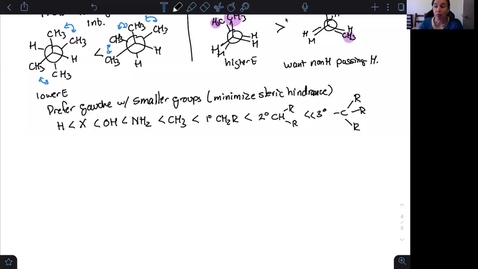 int.
CH₃ CH₃ H₃C CH₃
H CH₃ < CH₃ CH₃ > H H CH₃
CH₃ H H H H
CH₃ H higher E want non H passing H.
lower E
Prefer gauche w/ smaller groups (minimize steric hindrance)
H < X < OH < NH₂ < CH₃ < 1° CH₂R < 2° CH R R << 3° -C R R R